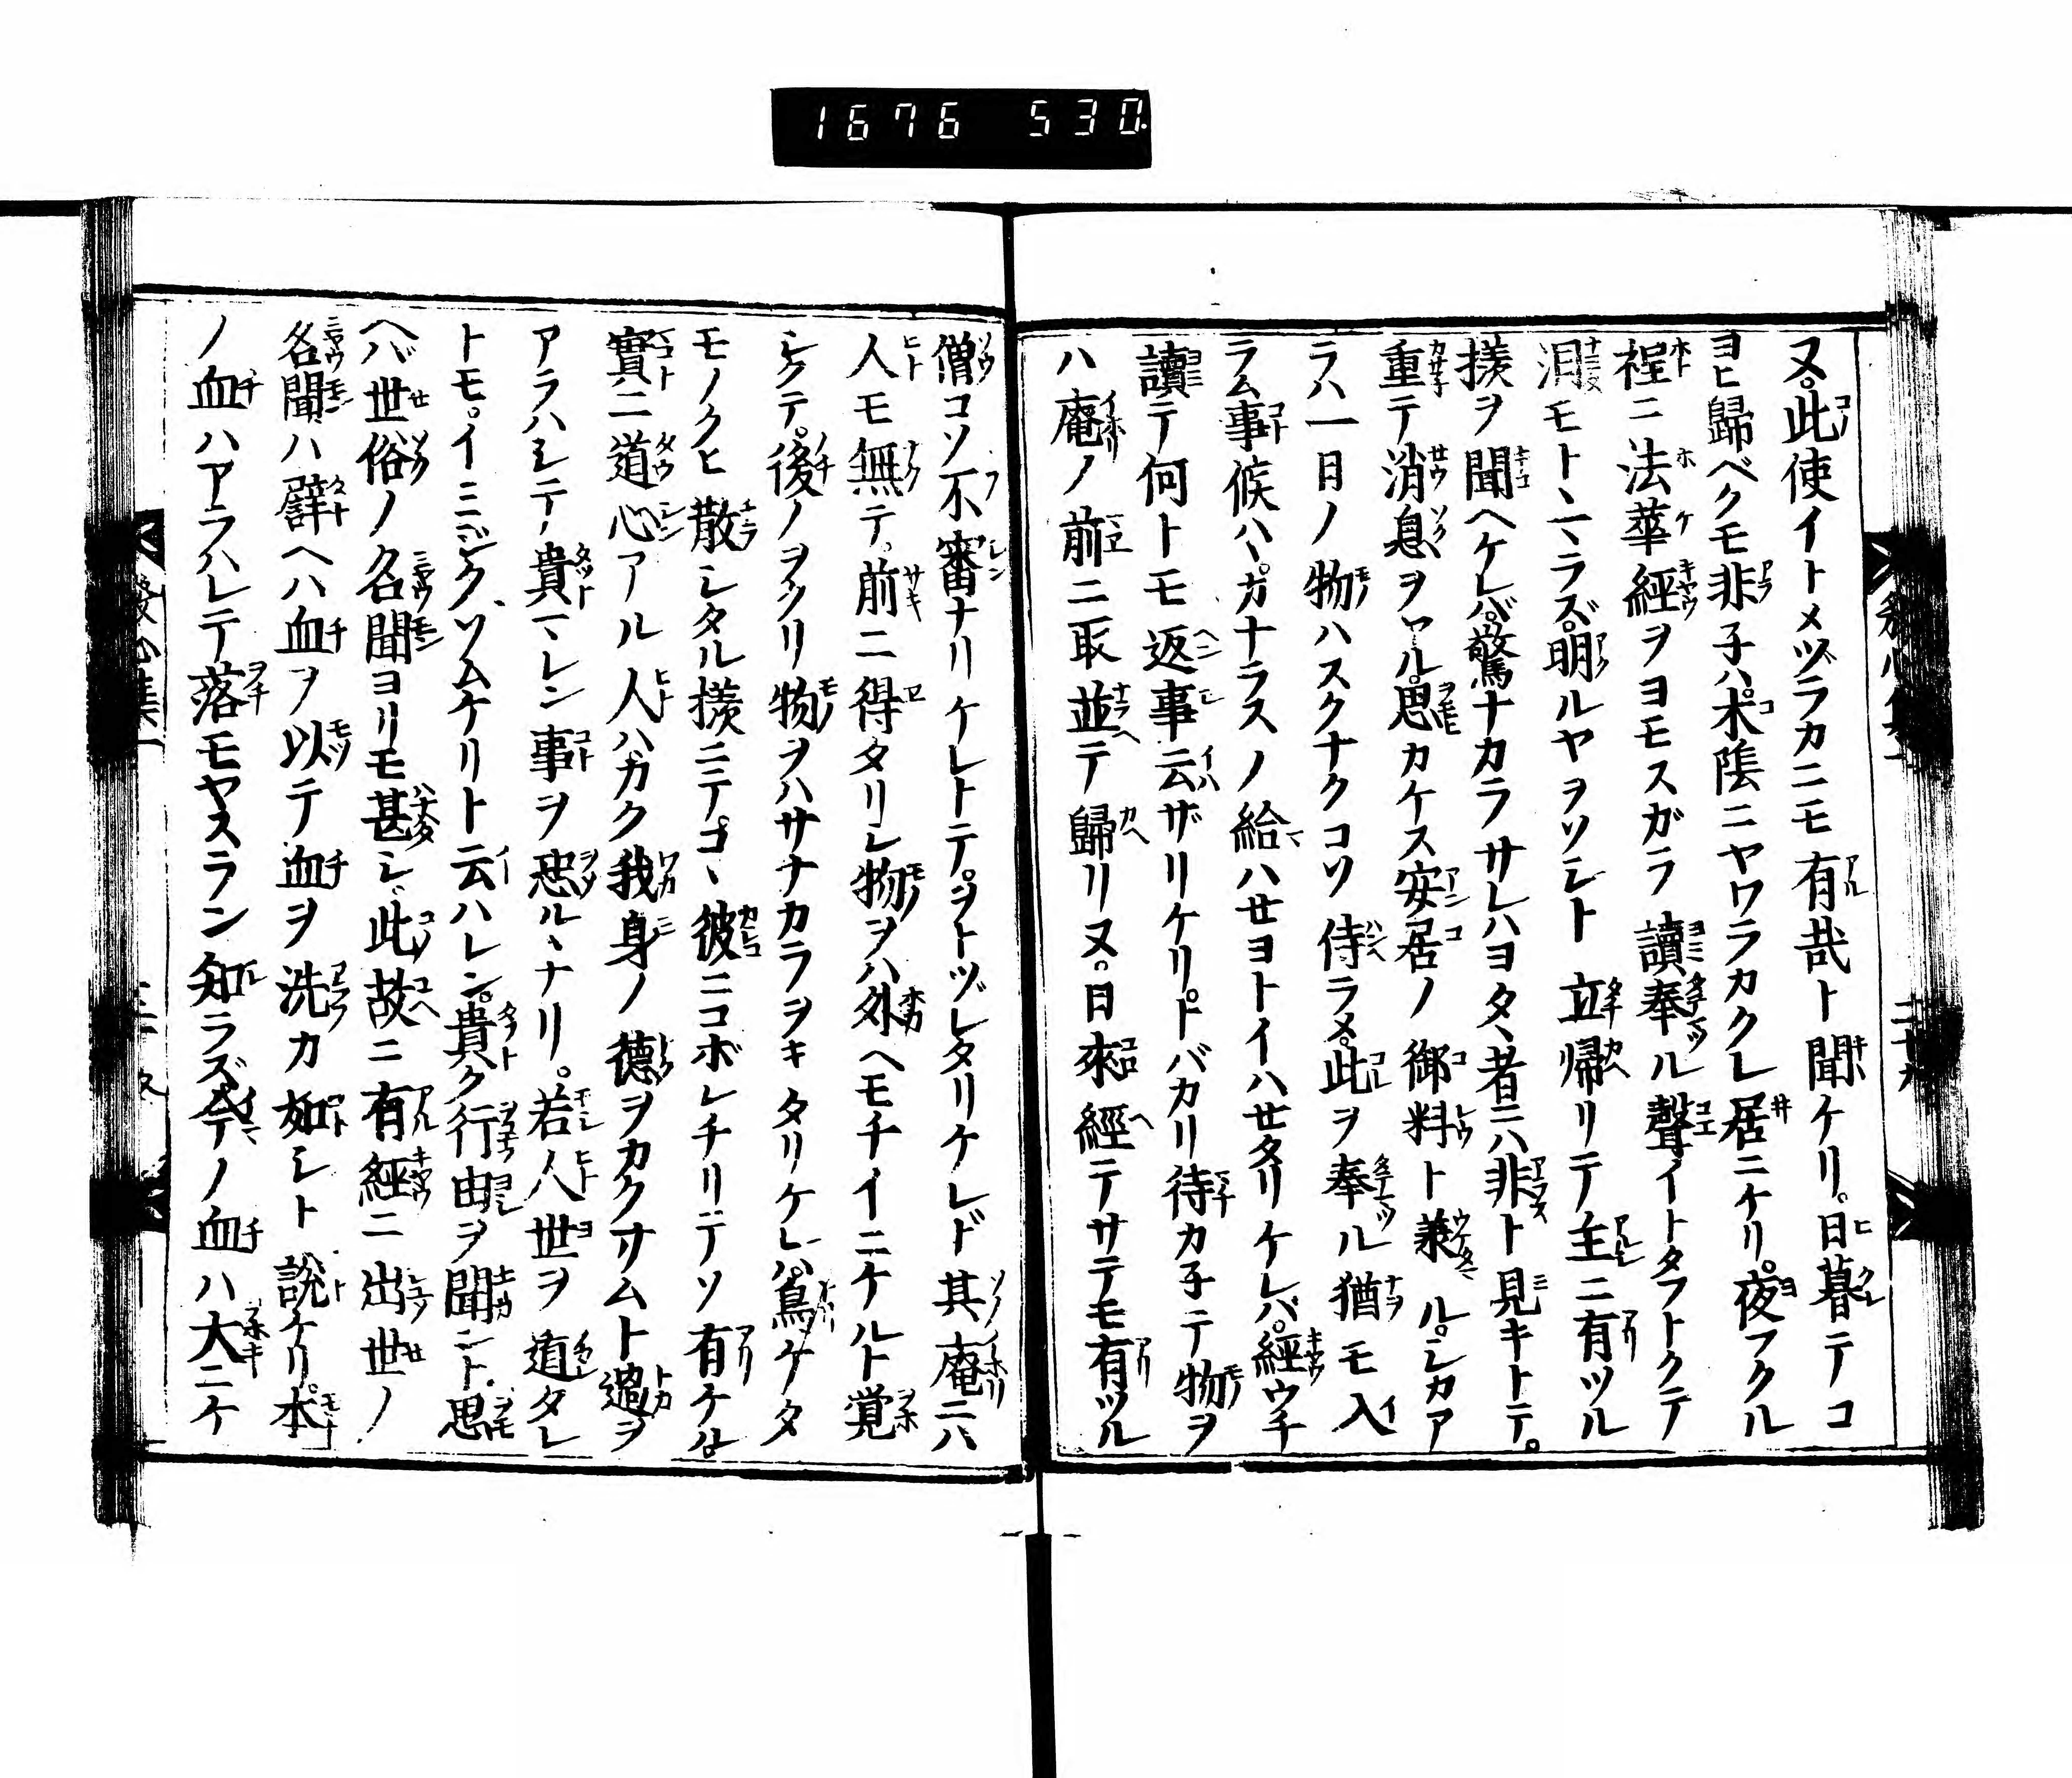 1676 530
ヌ。此使イトメヅラカニモ有哉ト聞ケリ。日暮テコ
ヨヒ歸ベクモ非子ハ。木陰ニヤワラカクレ居ニケリ。夜フクル
程ニ法華經ヲヨモスガラ讀奉ル聲イトタフトクテ
泪モトヽマラズ。明ルヤヲソシト立帰リテ主ニ有ツル
様ヲ聞ヘケレバ。驚ナカラサレハヨタヽ者ニハ非ト見キトテ。
重テ消息ヲヤル。思カケス安居ノ御料ト兼ル。シカア
ラハ一日ノ物ハスクナクコソ侍ラメ。此ヲ奉ル猶モ入
ラム事候ハヽ。カナラスノ給ハせヨトイハせタリケレバ。經ウチ
讀テ何トモ返事云ザリケリ。トバカリ待カ子テ物ヲ
ハ庵ノ前ニ取並テ歸リヌ。日來經テサテモ有ツル
僧コソ不審ナリケレトテ。ヲトヅレタリケレド其庵ニハ
人モ無テ。前ニ得タリシ物ヲハ外ヘモチイニケルト覚
シクテ。後ノヲクリ物ヲハサナカラヲキタリケレハ。鳥ケタ
モノクヒ散シタル様ニテ。コヽ彼ニコボレチリテソ有ケル
實ニ道心アル人ハ。カク我身ノ德ヲカクサムト過ヲ
アラハシテ。貴マレン事ヲ恐ルヽナリ。若人世ヲ遁タレ
トモ。イミジクソムケリト云ハレン。貴ク行由ヲ聞ント思
ヘバ世俗ノ名聞ヨリモ甚シ。此故ニ有經ニ出世ノ
名聞ハ譬ヘハ血ヲ以テ血ヲ洗カ如シト說ケリ。本
ノ血ハアラハレテ落モヤスラン知ラズ。今ノ血ハ大ニケ